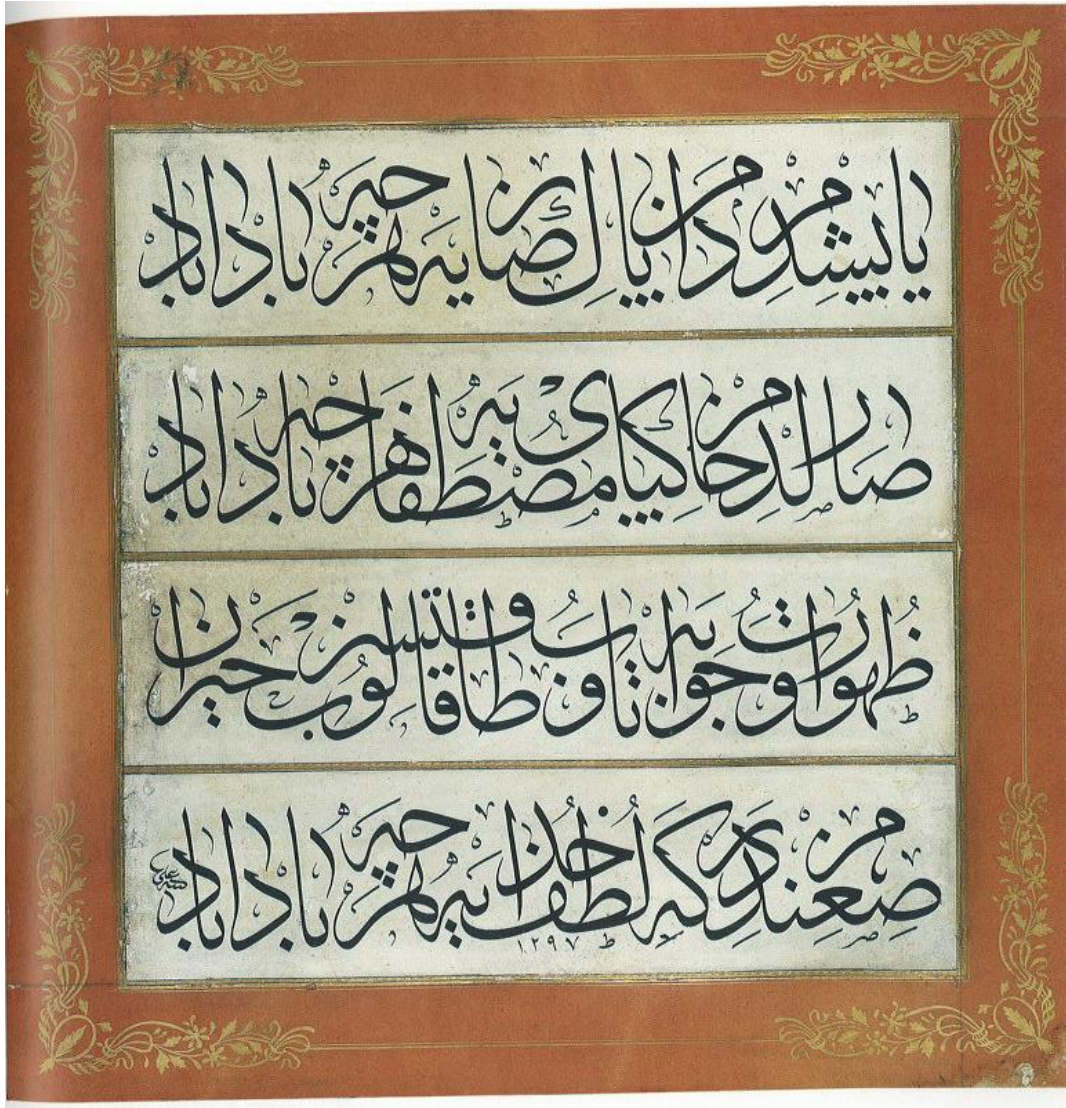 یاپیشدم دامن پاك رضایه هر چه باد اباد
صارلدم خاکپای مصطفایه هر چه باد اباد
ظهورات وجوابه تاب و طاقتسز قالوب حیران
صغندم درکه لطف خدایه هر چه باد اباد
١٢٩٧